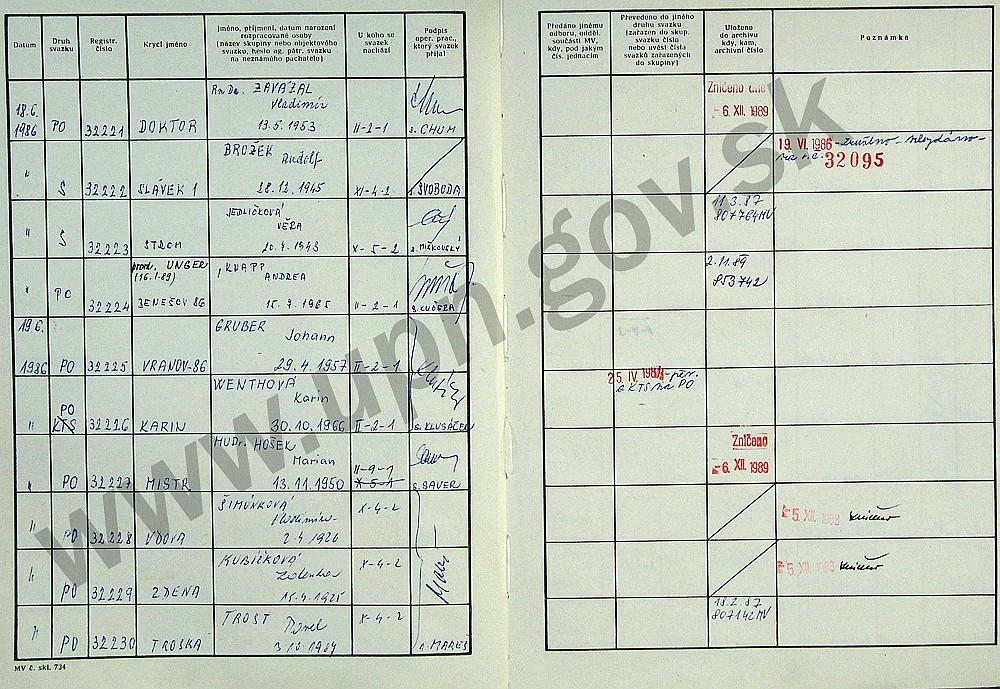 Datum
Druh
svazku
Registr.
číslo
Krycí jméno
Jméno, příjmení, datum narození
rozpracované osoby
(název skupiny nebo objektového
svazku, heslo ag. pátr. svazku
na neznámého pachatele)
U koho se
svazek
nachází
Podpis
oper. prac.,
který svazek
přijal
Předáno jinému
odboru, odděl.
součásti MV,
kdy, pod jakým
čís. jednacím
Převedeno do jiného
druhu svazku
(zařazen do skup.
svazku číslo
nebo uvést čísla
svazků zařazených
do skupiny)
Uloženo
do archivu
kdy, kam,
archivní číslo
Poznámka
ZAVÁZAL
Vladimír
18.6.
1986 PO 32221 DOKTOR 13.5.1953 II-2-1 CHUM
Zničeno dne
6. XII. 1989
BROŽEK
Rudolf
" S 32222 SLÁVEK 1 28.12.1945 XI-4-2 SVOBODA
19. VI. 1986
32095
JEDLIČKOVÁ
VĚRA
" S 32223 STROM 20.4.1943 X-5-2 MIČKOVSKÝ
11.3.87
807764MV
UNGER
(16.1.89)
KNAPP
ANDREA
" PO 32224 BENEŠOV 86 15.9.1965 II-2-1 KUČERA
2.11.89
853742
GRUBER
Johann
19.6.
1986 PO 32225 VRANOV-86 29.4.1957 II-2-1
WENTHOVÁ
Karin
PO
" KTS 32226 KARIN 30.10.1966 II-2-1 KLUSÁČEK
25. IV. 198
z KTS na PO
MUDr. HOŠEK
Marian
II-9-1
" PO 32227 MISTR 13.11.1950 X-5-1 SAVER
Zničeno
6. XII. 1989
ŠIMŮNKOVÁ
X-4-2
" PO 32228 VDOVA 2.4.1920
5. XII. 1988 zničeno
KUBIČKOVÁ
Zdenka
X-4-2
" PO 32229 ZDENA 15.4.1925
5. XII. zničeno
TROST
Pavel
X-4-2
" PO 32230 TROSKA MAREŠ
18.2.87
807142MV
MV č. skl. 734
www.upn.gov.sk